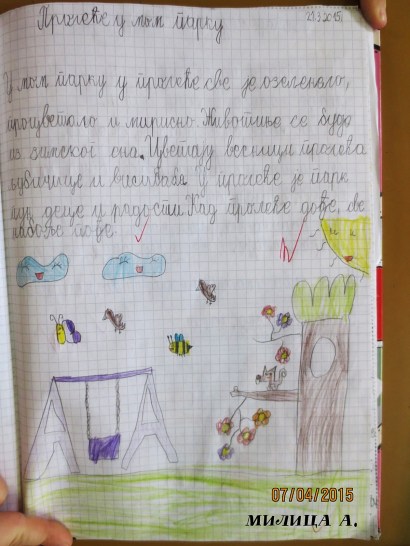 Пролеће у мом парку
У мом парку у пролеће све је озеленело,
процветало и мирисно. Животиње се буде
из зимског сна. Цветају весници пролећа
љубичице и висибаба. У пролеће је парк
пун деце и радости. Кад пролеће дође, све
набоље пође.
07/04/2015
МИЛИЦА А.